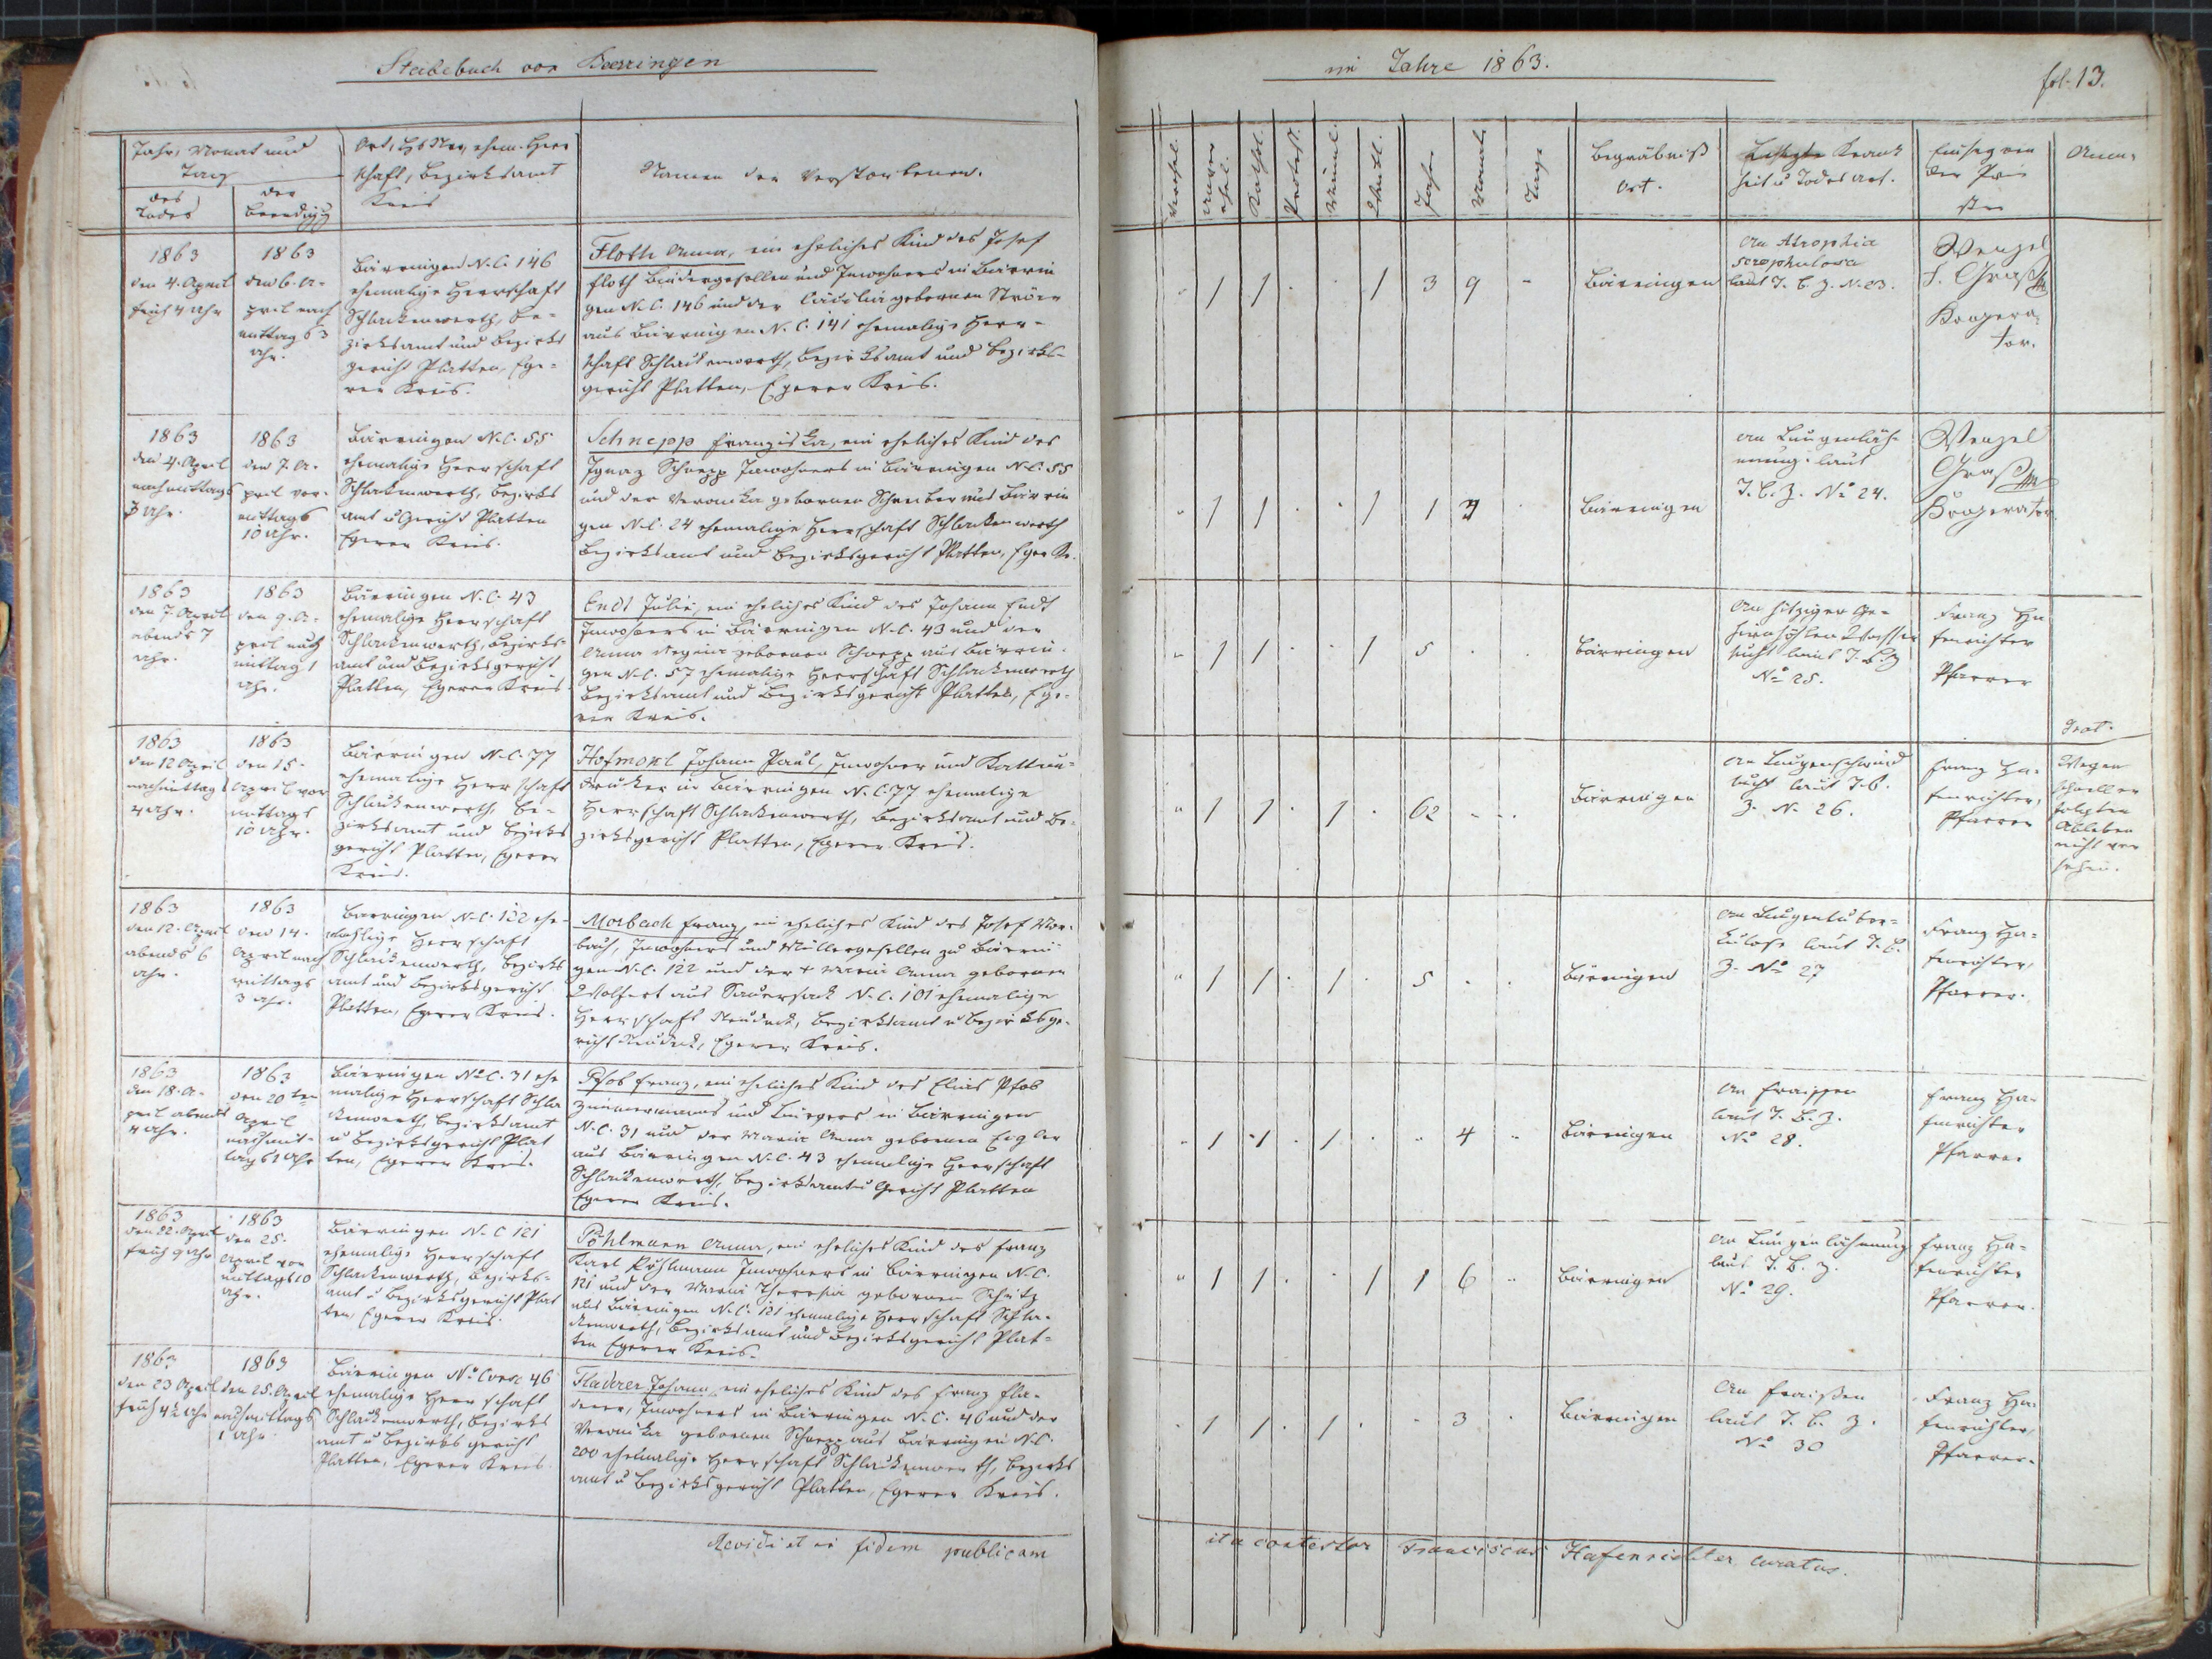 Sterbebuch von Baerringen
im Jahre 1863.
fol. 13.
Jahr, Monat und
Tag
des
Todes
der
Beerdigg
Ort, Hs Nro, ehem. Herr
schaft, Bezirksamt
Kreis
Namen der Verstorbenen.
Kathol.
Protest.
Männl.
Weibl.
Jahre
Monate
Tage
Begräbniß
Ort.
Krank
heit u Todes art.
Einsegnen
der Prie
ster
Anm.
1863
den 4. April
früh 4 Uhr
1863
den 6. A-
pril nach
mittags 3
Uhr.
Bärringen N.C. 146
ehemalige Herrschaft
Schlackenwerth, Be-
zirksamt und Bezirks
gericht Platten, Ege-
rer Kreis.
Floth Anna, ein eheliches Kind des Josef
Floth Bindergesellen und Inwohners in Bärrin
gen N.C. 146 und der Cäcilia gebornen
aus Bärringen N.C. 141 ehemalige Herr-
schaft Schlackenwerth, Bezirksamt und Bezirks-
gericht Platten, Egerer Kreis.
" 1 1 . . 1 3 9 -
Bärringen
An Atrophia
scrophulosa
laut T.B.Z. N. 23.
Wenzel
J. Graß
Koopera-
tor.
1863
den 4. April
nachmittags
3 Uhr.
1863
den 7. A-
pril vor-
mittags
10 Uhr.
Bärringen N.C. 55
ehemalige Herrschaft
Schlackenwerth, Bezirks
amt u Gericht Platten
Egerer Kreis.
Schnepp Franziska, ein eheliches Kind des
Ignaz Schnepp Inwohners in Bärringen N.C. 55
und der Veronika gebornen Schreiber aus Bärrin
gen N.C. 24 ehemalige Herrschaft Schlackenwerth
Bezirksamt und Bezirksgericht Platten, Eger Kr.
" 1 1 . . 1 1 .
Bärringen
An Lungenläh-
mung laut
T.B.Z. No 24.
Wenzel
Graß
Kooperator.
1863
den 7. April
abends 7
Uhr.
1863
den 9. A-
pril nach
mittag 1
Uhr.
Bärringen N.C. 43
ehemalige Herrschaft
Schlackenwerth, Bezirks-
amt und Bezirksgericht
Platten, Egerer Kreis
Endt Julie, ein eheliches Kind des Johann Endt
Inwohners in Bärringen N.C. 43 und der
Anna Regina gebornen Schnepp aus Bärrin-
gen N.C. 57 ehemalige Herrschaft Schlackenwerth
Bezirksamt und Bezirksgericht Platten, Ege-
rer Kreis.
" 1 1 . . 1 5 . .
Bärringen
An hitziger Ge-
hirnhöhlen Wasser
sucht laut T.B.Z
No 25.
Franz Ha
fenrichter
Pfarrer
1863
den 12 April
nachmittag
4 Uhr.
1863
den 15.
April vor
mittags
10 Uhr.
Bärringen N.C. 77
ehemalige Herrschaft
Schlackenwerth, Be-
zirksamt und Bezirks
gericht Platten, Egerer
Kreis.
Hofmokl Johann Paul, Inwohner und Kattun-
drucker in Bärringen N.C. 77 ehemalige
Herrschaft Schlackenwerth, Bezirksamt und Be-
zirksgericht Platten, Egerer Kreis.
" 1 1 . 1 . 62 . .
Bärringen
An Lungenschwind
sucht laut T.B.
Z. N. 26.
Franz Ha-
fenrichter,
Pfarrer
Wegen
schnell er
folgten
Ableben
nicht ver
sehen.
1863
den 12. April
abends 6
Uhr.
1863
den 14.
April nach
mittags
3 Uhr.
Bärringen N.C. 122 ehe-
malige Herrschaft
Schlackenwerth, Bezirks
amt und Bezirksgericht
Platten, Egerer Kreis.
Morbach Franz, ein eheliches Kind des Josef Mor-
bach, Inwohners und Müllergesellen zu Bärrin
gen N.C. 122 und der + Maria Anna gebornen
Wolfert aus Sauersack N.C. 101 ehemalige
Herrschaft Neudeck, Bezirksamt u Bezirksge-
richt Neudeck, Egerer Kreis.
" 1 1 . 1 . 5 . .
Bärringen
An Lungentuber-
kulose laut T.B.
Z. No 27
Franz Ha-
fenrichter,
Pfarrer.
1863
den 18. A-
pril abends
4 Uhr.
1863
den 20ten
April
nachmit-
tags 1 Uhr
Bärringen No C. 31 ehe
malige Herrschaft Schla
ckenwerth, Bezirksamt
u Bezirksgericht Plat
ten, Egerer Kreis.
Pfob Franz, ein eheliches Kind des Elias Pfob
Zimmermanns und Bürgers in Bärringen
N.C. 31 und der Maria Anna gebornen Eigler
aus Bärringen N.C. 43 ehemalige Herrschaft
Schlackenwerth, Bezirksamt u Gericht Platten
Egerer Kreis.
" 1 1 . 1 . " 4 "
Bärringen
An Fraißen
laut T.B.Z.
No 28.
Franz Ha-
fenrichter
Pfarrer
1863
den 22. April
früh 9 Uhr
1863
den 25.
April vor
mittags 10
Uhr.
Bärringen N.C 121
ehemalige Herrschaft
Schlackenwerth, Bezirks-
amt u Bezirksgericht Plat
ten, Egerer Kreis.
Pöhlmann Anna, ein eheliches Kind des Franz
Karl Pöhlmann Inwohners in Bärringen N.C.
121 und der Maria Theresia gebornen Schütz
aus Bärringen N.C. 121 ehemalige Herrschaft Schla-
ckenwerth, Bezirksamt und Bezirksgericht Plat-
ten Egerer Kreis.
" 1 1 . . 1 1 6 "
Bärringen
An Lungenlähmung
laut T.B.Z.
No 29.
Franz Ha-
fenrichter
Pfarrer.
1863
den 23 April
früh 4½ Uhr
1863
den 25. April
nachmittags
1 Uhr
Bärringen No Consc 46
ehemalige Herrschaft
Schlackenwerth, Bezirks
amt u Bezirksgericht
Platten, Egerer Kreis
Fladerer Johann, ein eheliches Kind des Franz Fla-
derer, Inwohners in Bärringen N.C. 46 und der
Veronika gebornen Schnepp aus Bärringen N.C.
200 ehemalige Herrschaft Schlackenwerth, Bezirks
amt u Bezirksgericht Platten, Egerer Kreis.
" 1 1 . 1 . . 3 .
Bärringen
An Fraißen
laut T.B.Z.
No 30
Franz Ha-
fenrichter,
Pfarrer.
Revidi et in fidem publicam
ita contestor Franciscus Hafenrichter curatus.